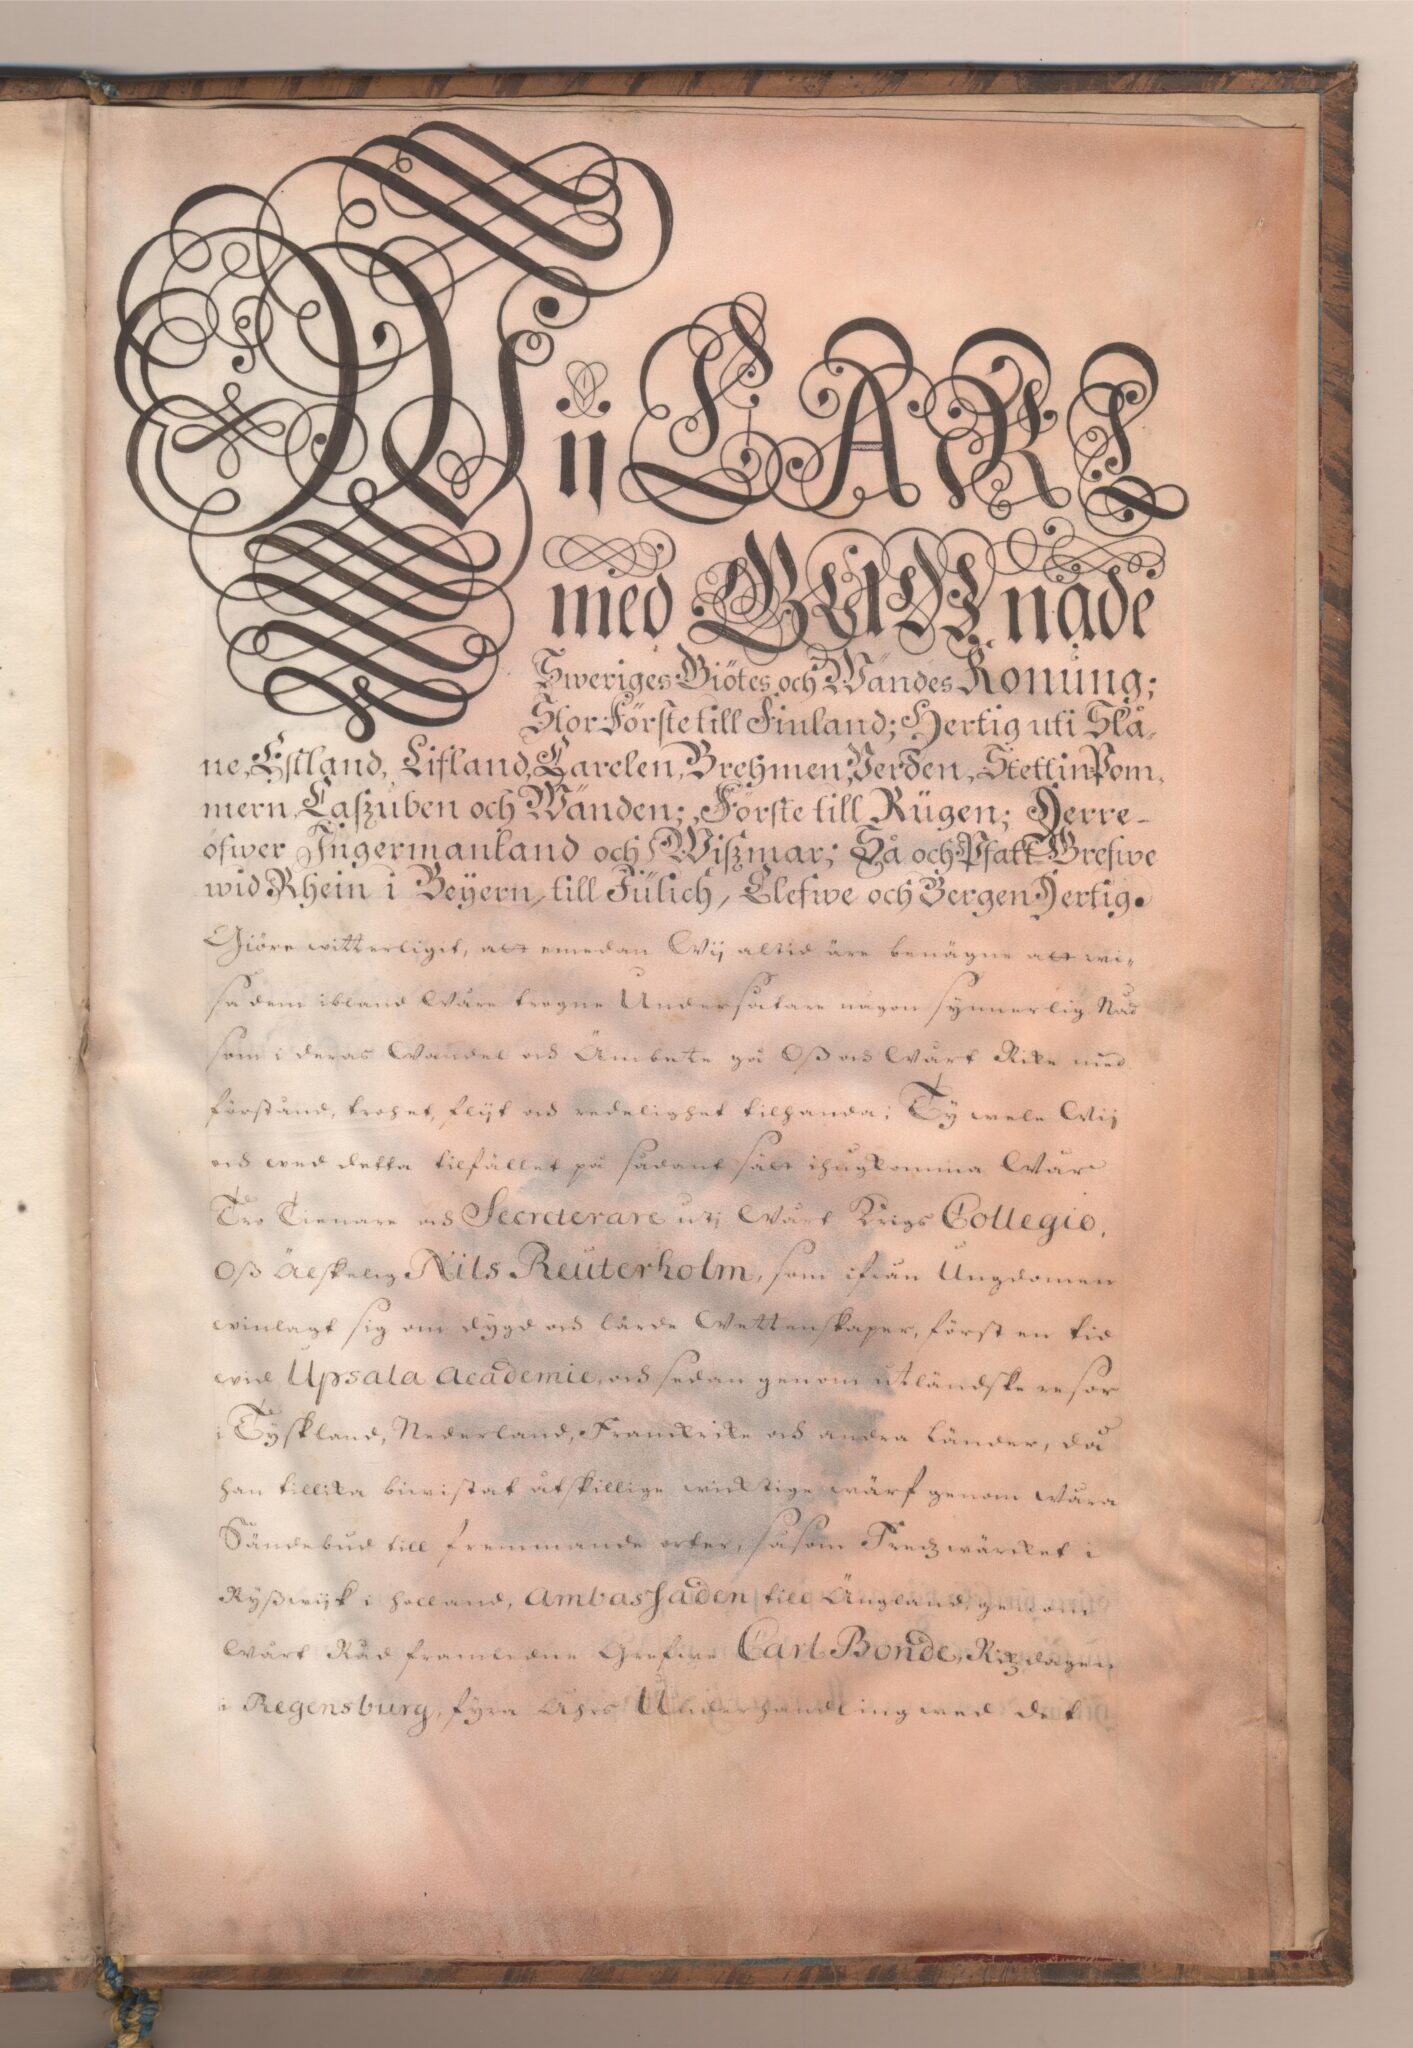 Wij CARL
med GUDZ nåde
Sweriges Giötes och Wändes Konung;
StorFörste till Finland; Hertig uti Skå-
ne, Estland, Lifland, Carelen, Brehmen, Verden, StettinPom,
mern, Caszuben och Wänden; Förste till Rügen; Herre-
öfwer Ingermanland och Wiszmar; Så och Pfaltz Grefwe
wid Rhein i Beyern, till Jülich, Clefwe och Bergen Hertig.
Giöre witterligit, att emedan Wij altid äre benägne att wi-
sa dem ibland Wåre trogne Undersåtare någon synnerlig Nåd
som i deras Wandel och Ämbete gå Oß och Wårt Rike med
förstånd, trohet, flijt och redelighet tilhanda; Ty wele Wij
och wed detta tilfället på sådant sätt ihugkomma Wår
Tro Tienare och Secreterare uti Wårt Krigs Collegio,
Oß Älskelig Nils Reuterholm, som ifrån Ungdomen
winlagt sig om dygd och lärde Wettenskaper, först en tid
wid Upsala Academie, och sedan genom utländske resor
i Tyskland, Nederland, Franckrike och andra Länder, då
han tillika biwistat åtskillige wicktige wärf genom Wåra
Sändebud till fremmande orter, såsom Fredzwärcket i
Ryßwijk i Holland, Ambassaden till Ängland genom
Wårt Råd framledne Grefwe Carl Bonde, Rikzdagen
i Regensburg, fyra Åhrs Underhandling wed det